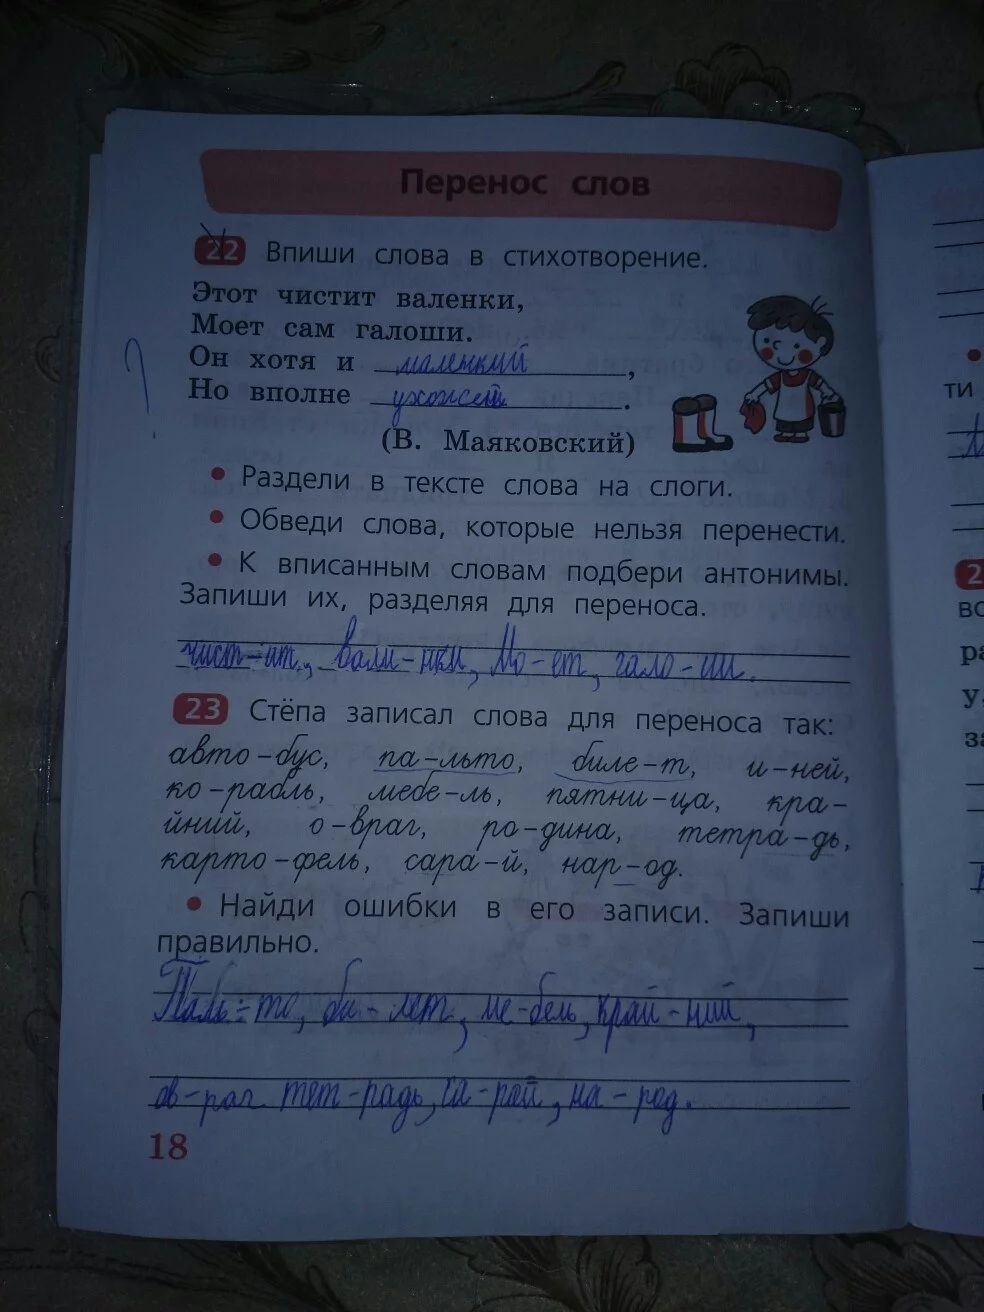 Перенос слов
22 Впиши слова в стихотворение.
Этот чистит валенки,
Моет сам галоши.
Он хотя и маленький,
Но вполне .
(В. Маяковский)
• Раздели в тексте слова на слоги.
• Обведи слова, которые нельзя перенести.
• К вписанным словам подбери антонимы.
Запиши их, разделяя для переноса.
чист-ит, вали-нки, Мо-ет, гало-ши.
23 Стёпа записал слова для переноса так:
авто-бус, па-льто, биле-т, и-ней,
ко-рабль, мебе-ль, пятни-ца, кра-
йний, о-враг, ро-дина, тетра-дь,
карто-фель, сара-й, нар-од.
• Найди ошибки в его записи. Запиши
правильно.
Паль-то, би-лет, ме-бель, край-ний,
ов-раг тет-радь, са-рай, на-род.
18
ти
2